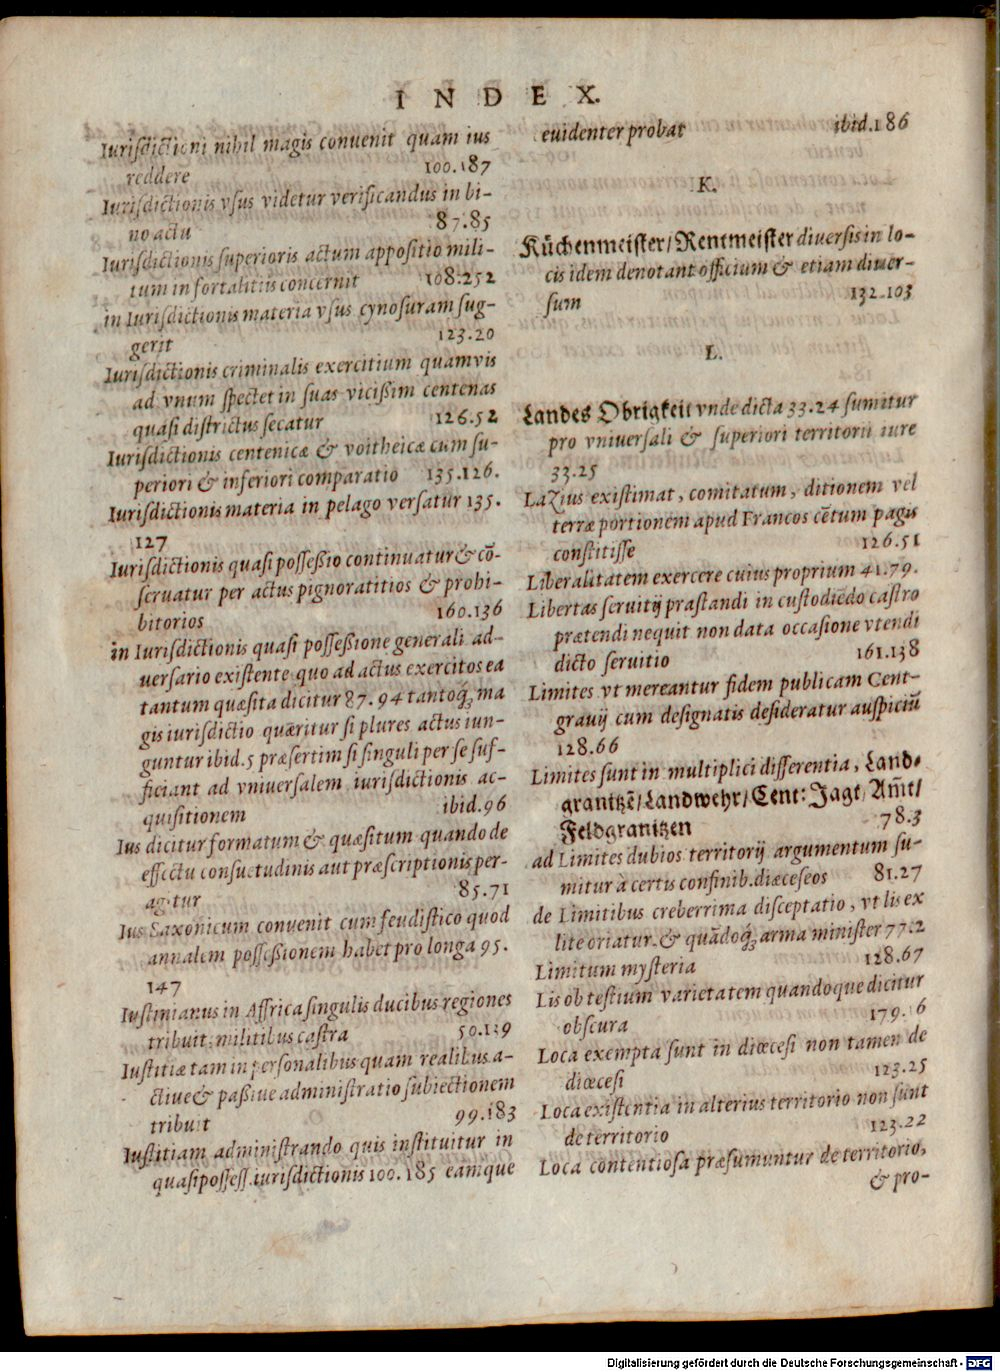 INDEX.
Iurisdictioni nihil magis convenit quam ius
reddere 100.187
Iurisdictionis vsus videtur verificandus in bi-
no actu 87.85
Iurisdictionis superioris actum appositio mili-
tum in fortalitiis concernit 108.252
in Iurisdictionis materia vsus cynosuram sug-
gerit 123.20
Iurisdictionis criminalis exercitium quamvis
ad vnum spectet in suas vicissim centenas
quasi districtus secatur 126.52
Iurisdictionis centenicæ & voitheicæ cum su-
periori & inferiori comparatio 135.126.
Iurisdictionis materia in pelago versatur 135.
127
Iurisdictionis quasi possessio continuatur & cō-
servatur per actus pignoratitios & prohi-
bitorios 160.136
in Iurisdictionis quasi possessione generali ad-
versario existente quo ad actus exercitos ea
tantum quæsita dicitur 87.94 tantoq́ʒ ma
gis iurisdictio quæritur si plures actus iun-
guntur ibid.5 præsertim si singuli per se suf-
ficiant ad vniuersalem iurisdictionis ac-
quisitionem ibid.96
Ius dicitur formatum & quæsitum quando de
effectu consuetudinis aut præscriptionis per-
agitur 85.71
Ius Saxonicum convenit cum feudistico quod
annalem possessionem habet pro longa 95.
147
Iustinianus in Affrica singulis ducibus regiones
tribuit, militibus castra 50.139
Iustitiæ tam in personalibus quam realibus a-
ctiue & passiue administratio subiectionem
tribuit 99.183
Iustitiam administrando quis instituitur in
quasi possess. iurisdictionis 100.185 eamque
euidenter probat ibid.186
K.
Küchenmeister/Rentmeister diversis in lo-
cis idem denotant officium & etiam diuer-
sum 132.103
L.
Landes Obrigkeit vnde dicta 33.24 sumitur
pro vniuersali & superiori territorii iure
33.25
Lazius existimat, comitatum, ditionem vel
terræ portionem apud Francos cētum pagis
constitisse 126.51
Liberalitatem exercere cuius proprium 41.79.
Libertas seruitij præstandi in custodiēdo castro
prætendi nequit non data occasione vtendi
dicto seruitio 161.138
Limites vt mereantur fidem publicam Cent-
grauij cum designatis desideratur auspiciū
128.66
Limites sunt in multiplici differentia, Land-
grantzē/Landwehr/Cent: Jagt/Am̄t/
Feldgranitzen 78.3
ad Limites dubios territorij argumentum su-
mitur à certis confinib. diœceseos 81.27
de Limitibus creberrima disceptatio, vt lis ex
lite oriatur & quādoq́ʒ arma minister 77.2
Limitum mysteria 128.67
Lis ob testium varietatem quandoque dicitur
obscura 179.
Loca exempta sunt in diœcesi non tamen de
diœcesi 123.25
Loca existentia in alterius territorio non sunt
de territorio 123.22
Loca contentiosa præsumuntur de territorio,
& pro-
Digitalisierung gefördert durch die Deutsche Forschungsgemeinschaft - DFG